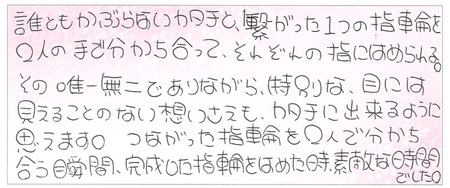 誰ともかぶらないカタチと、繋がった1つの指輪を
2人の手で分かち合って、それぞれの指にはめられる。
その唯一無二でありながら、特別な、目には
見えることのない想いさえも、カタチに出来るように
思えます。 つながった指輪を2人で分かち
合う瞬間、完成した指輪をはめた時、素敵な時間
でした。